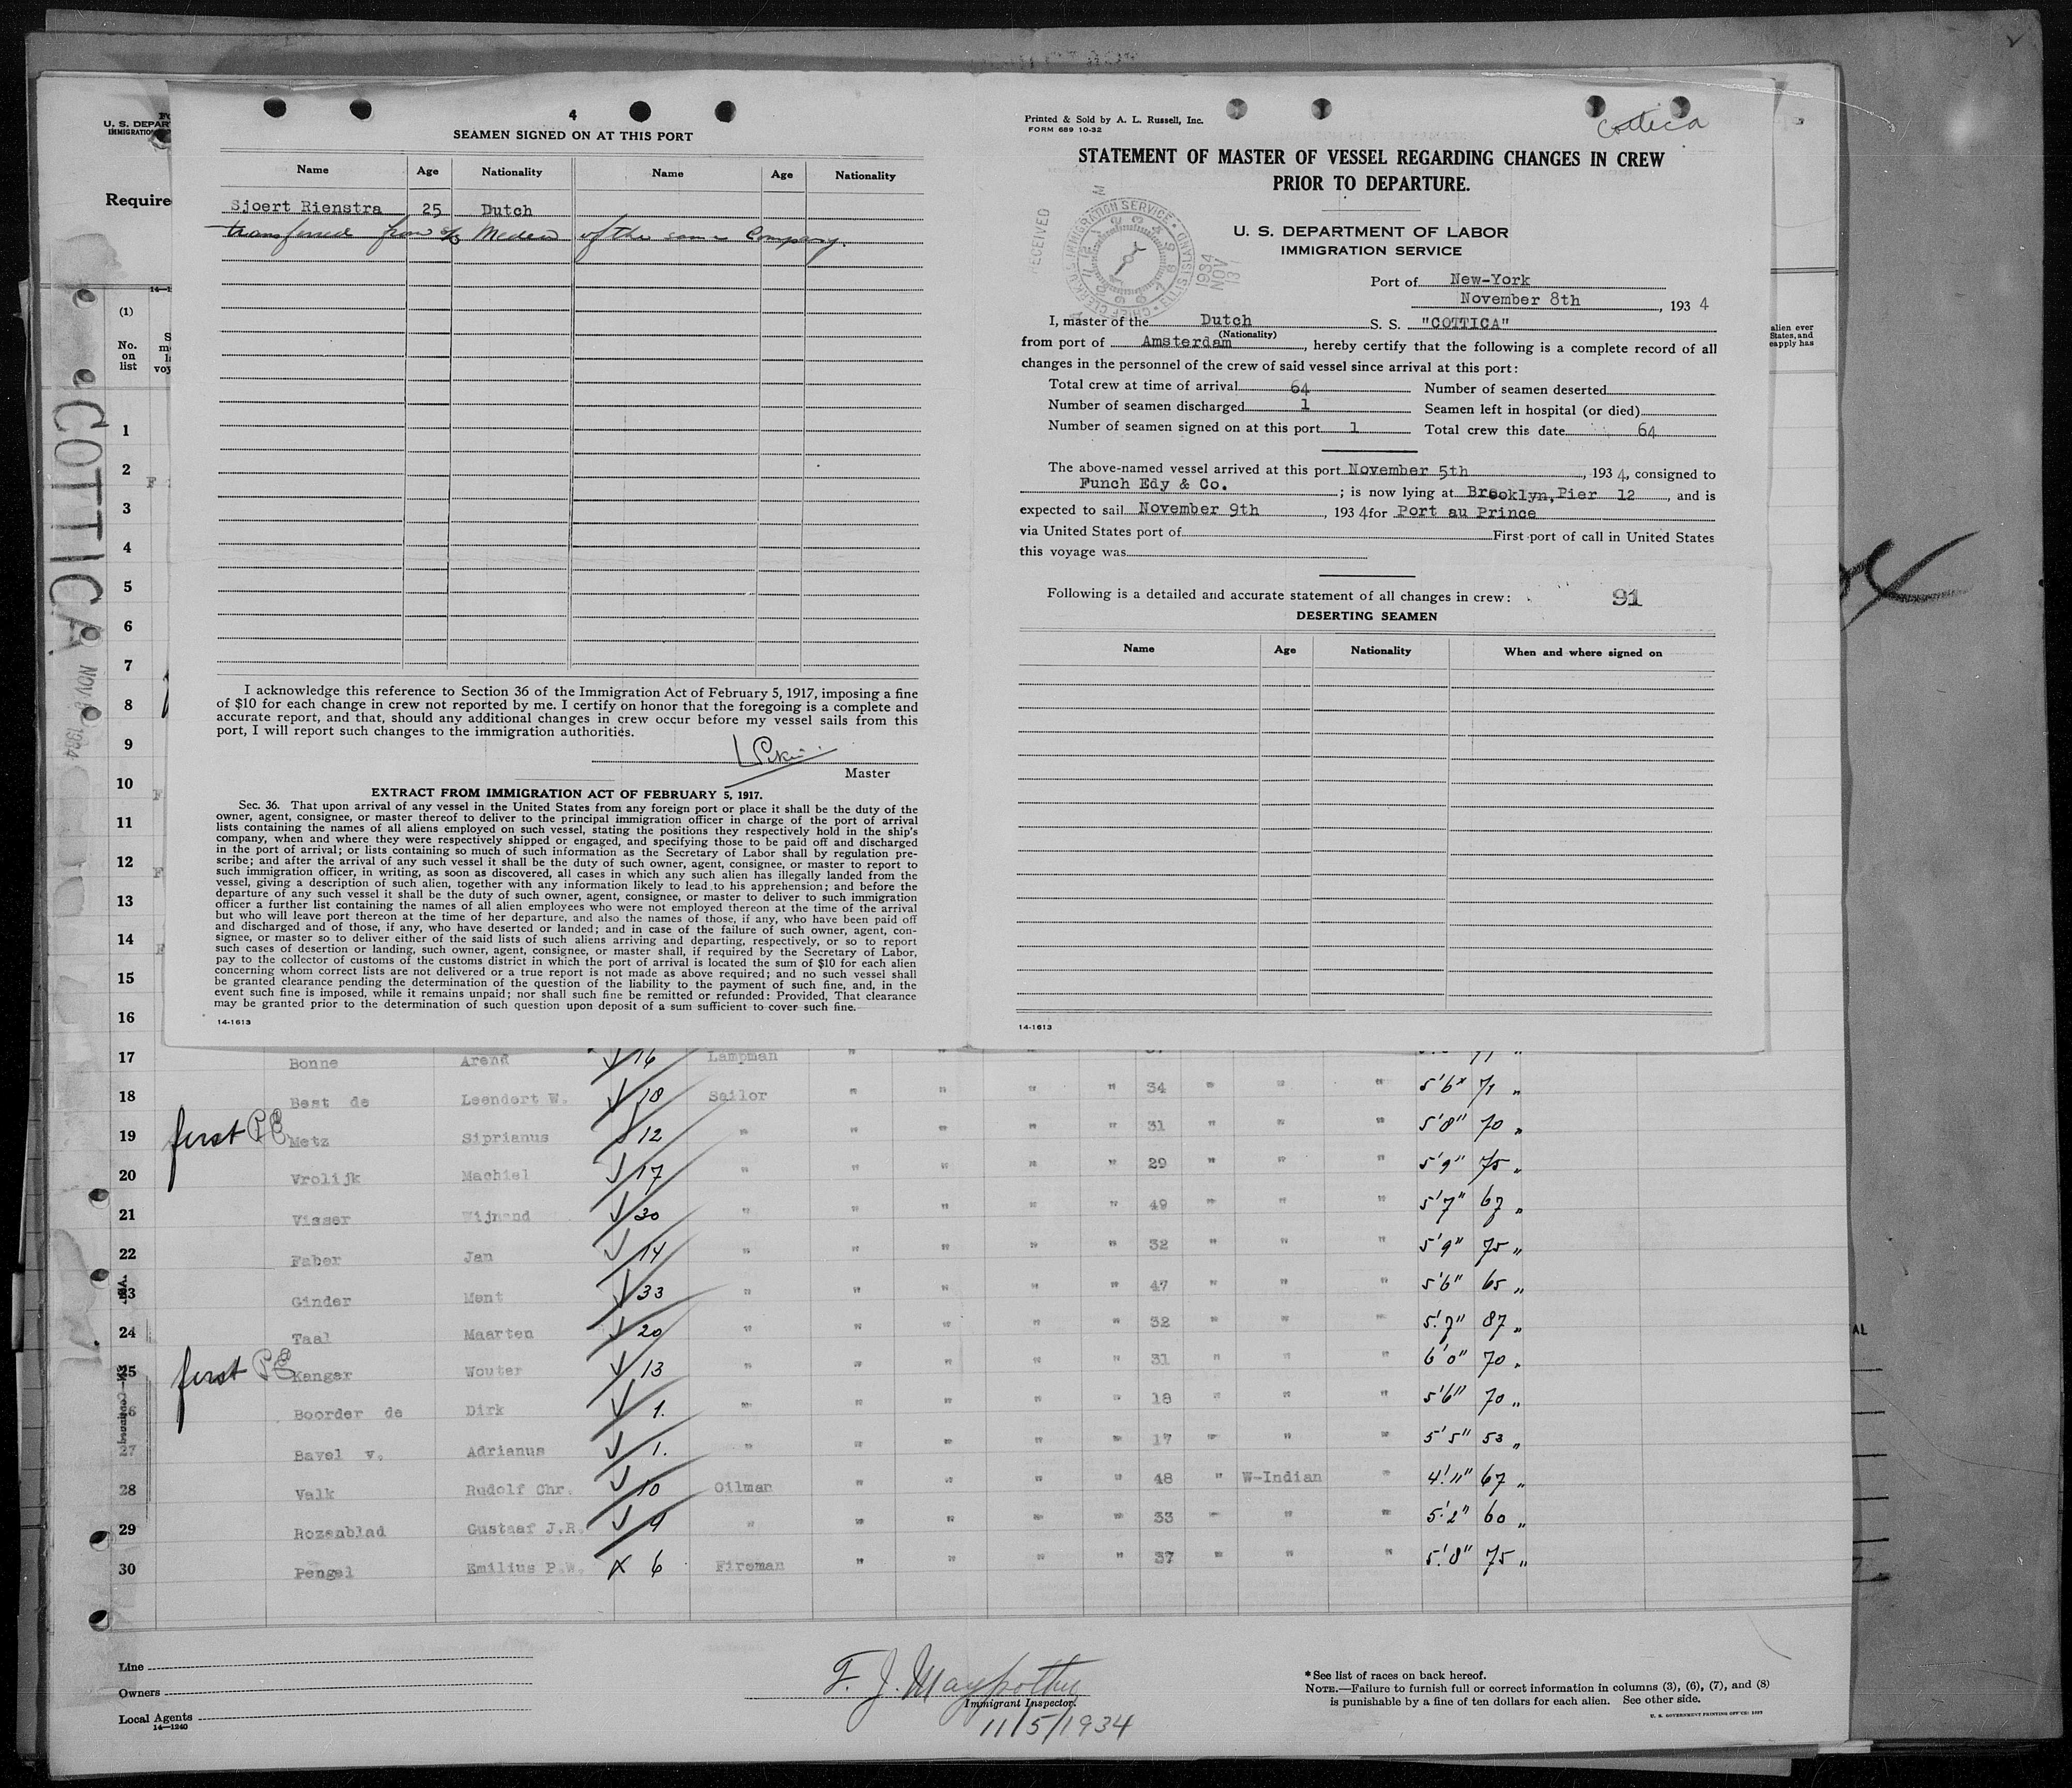 4
SEAMEN SIGNED ON AT THIS PORT
Name Age Nationality Name Age Nationality
Sjoert Rienstra 25 Dutch
transferred from s/s Medea of the same Company.
I acknowledge this reference to Section 36 of the Immigration Act of February 5, 1917, imposing a fine
of $10 for each change in crew not reported by me. I certify on honor that the foregoing is a complete and
accurate report, and that, should any additional changes in crew occur before my vessel sails from this
port, I will report such changes to the immigration authorities.
Master
EXTRACT FROM IMMIGRATION ACT OF FEBRUARY 5, 1917.
Sec. 36. That upon arrival of any vessel in the United States from any foreign port or place it shall be the duty of the
owner, agent, consignee, or master thereof to deliver to the principal immigration officer in charge of the port of arrival
lists containing the names of all aliens employed on such vessel, stating the positions they respectively hold in the ship's
company, when and where they were respectively shipped or engaged, and specifying those to be paid off and discharged
in the port of arrival; or lists containing so much of such information as the Secretary of Labor shall by regulation pre-
scribe; and after the arrival of any such vessel it shall be the duty of such owner, agent, consignee, or master to report to
such immigration officer, in writing, as soon as discovered, all cases in which any such alien has illegally landed from the
vessel, giving a description of such alien, together with any information likely to lead to his apprehension; and before the
departure of any such vessel it shall be the duty of such owner, agent, consignee, or master to deliver to such immigration
officer a further list containing the names of all alien employees who were not employed thereon at the time of the arrival
but who will leave port thereon at the time of her departure, and also the names of those, if any, who have been paid off
and discharged and of those, if any, who have deserted or landed; and in case of the failure of such owner, agent, con-
signee, or master so to deliver either of the said lists of such aliens arriving and departing, respectively, or so to report
such cases of desertion or landing, such owner, agent, consignee, or master shall, if required by the Secretary of Labor,
pay to the collector of customs of the customs district in which the port of arrival is located the sum of $10 for each alien
concerning whom correct lists are not delivered or a true report is not made as above required; and no such vessel shall
be granted clearance pending the determination of the question of the liability to the payment of such fine, and, in the
event such fine is imposed, while it remains unpaid; nor shall such fine be remitted or refunded: Provided, That clearance
may be granted prior to the determination of such question upon deposit of a sum sufficient to cover such fine.
14-1613
Printed & Sold by A. L. Russell, Inc.
FORM 689 10-32
Cottica
STATEMENT OF MASTER OF VESSEL REGARDING CHANGES IN CREW
PRIOR TO DEPARTURE.
RECEIVED
1934 NOV 13
U. S. DEPARTMENT OF LABOR
IMMIGRATION SERVICE
Port of New-York
November 8th, 1934
I, master of the Dutch S. S. "COTTICA"
(Nationality)
from port of Amsterdam, hereby certify that the following is a complete record of all
changes in the personnel of the crew of said vessel since arrival at this port:
Total crew at time of arrival 64 Number of seamen deserted
Number of seamen discharged 1 Seamen left in hospital (or died)
Number of seamen signed on at this port 1 Total crew this date 64
The above-named vessel arrived at this port November 5th, 1934, consigned to
Funch Edy & Co.; is now lying at Brooklyn, Pier 12, and is
expected to sail November 9th, 1934 for Port au Prince
via United States port of First port of call in United States
this voyage was
Following is a detailed and accurate statement of all changes in crew: 91
DESERTING SEAMEN
Name Age Nationality When and where signed on
14-1613
U. S. DEPAR
IMMIGRATION
Require
(1)
No.
on
list
alien ever
States, and
COTTICA
NOV 1934
1
2
3
4
5
6
7
8
9
10
11
12
13
14
15
16
17 Bonne Arend 16 Lampman
18 Best de Leendert W. 18 Sailor " " " " 34 " " " 5'6" 71 "
19 first PE Metz Siprianus 12 " " " " " 31 " " " 5'8" 70 "
20 Vrolijk Machiel 17 " " " " " 29 " " " 5'9" 75 "
21 Visser Wijnand 30 " " " " " 49 " " " 5'7" 67 "
22 Faber Jan 14 " " " " " 32 " " " 5'9" 75 "
23 Ginder Ment 33 " " " " " 47 " " " 5'6" 65 "
24 Taal Maarten 20 " " " " " 32 " " " 5'7" 87 "
25 first PE Kanger Wouter 13 " " " " " 31 " " " 6'0" 70 "
26 Boorder de Dirk 1. " " " " " 18 " " " 5'6" 70 "
27 Bavel v. Adrianus 1. " " " " " 17 " " " 5'5" 53 "
28 Valk Rudolf Chr. 10 Oilman " " " " 48 " W-Indian " 4'11" 67 "
29 Rozenblad Gustaaf J.R. 9 " " " " " 33 " " " 5'2" 60 "
30 Pengel Emilius P.W. x 6 Fireman " " " " 37 " " " 5'8" 75 "
Line
Owners
Local Agents
14—1240
Immigrant Inspector.
11/5/1934
*See list of races on back hereof.
NOTE.—Failure to furnish full or correct information in columns (3), (6), (7), and (8)
is punishable by a fine of ten dollars for each alien. See other side.